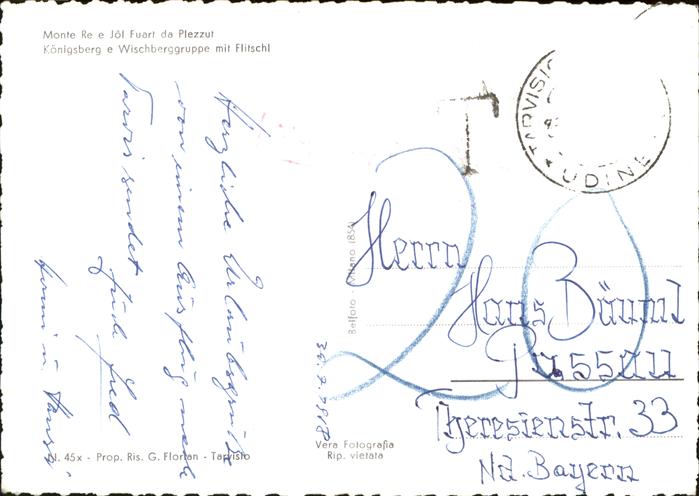 Monte Re e Jôl Fuart da Plezzut
Königsberg e Wischberggruppe mit Flitschl
Herzliche Urlaubsgrüße
von einem Ausflug nach
Tarvis sendet
Euch Fred
Hansi
N. 45x - Prop. Ris. G. Florian - Tarvisio
Belfoto - Milano
Vera Fotografia
Rip. vietata
T
TARVISIO
UDINE
20
Herrn
Hans Bäuml
Passau
Theresienstr. 33
Nd. Bayern